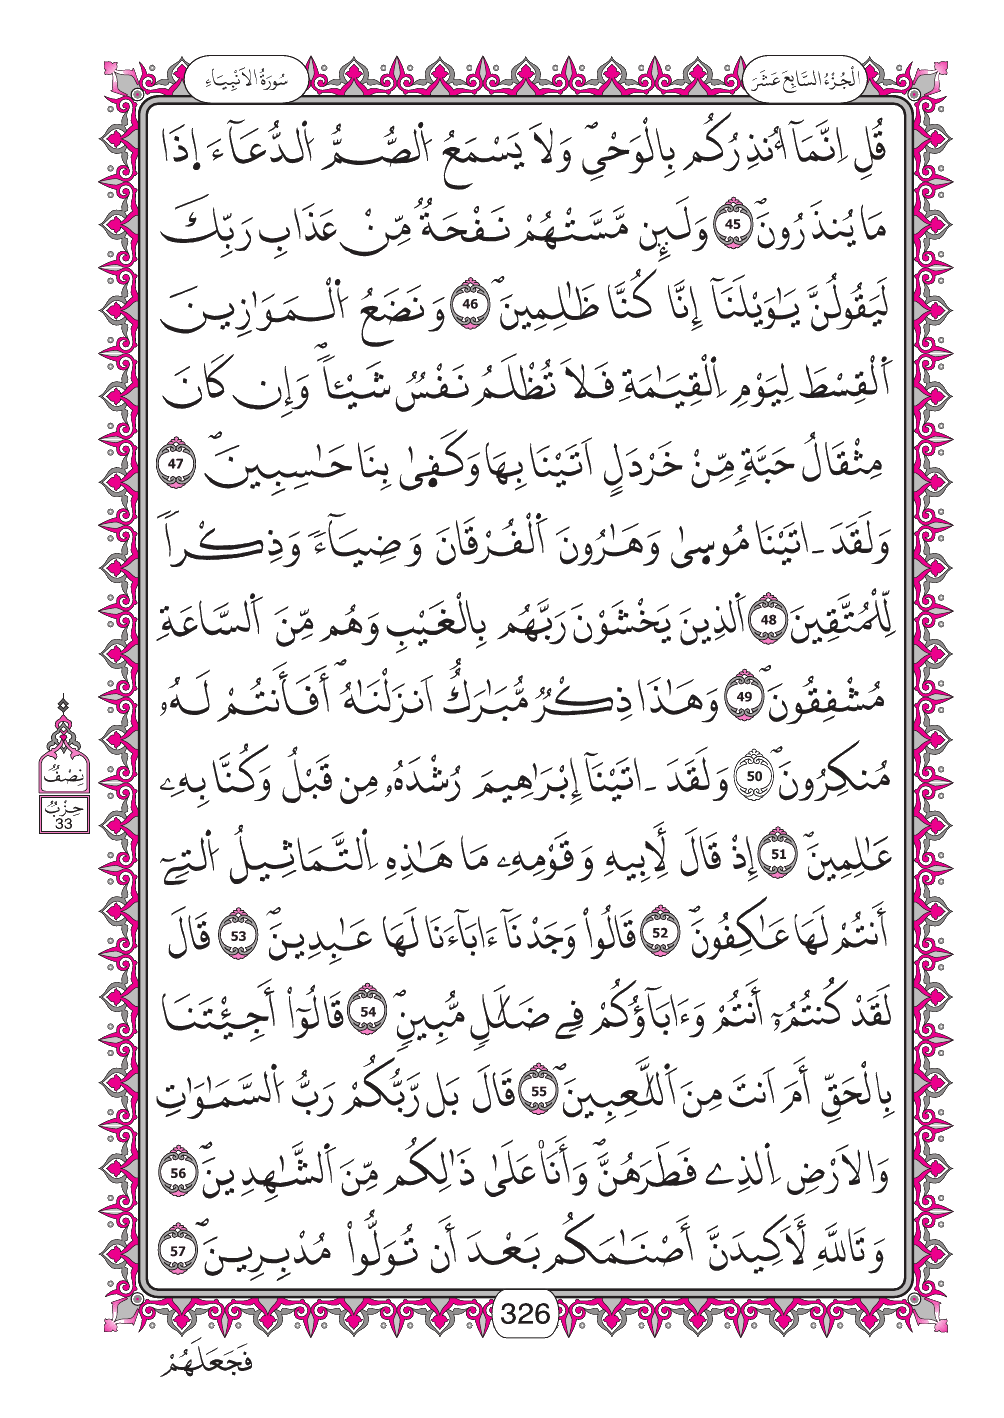 الْجُزْءُ السَّابِعَ عَشَرَ
سُورَةُ الْأَنْبِيَاءِ
قُلِ اِنَّمَآ أُنذِرُكُم بِالْوَحْيِۖ وَلَا يَسْمَعُ اُ۬لصُّمُّ اُ۬لدُّعَآءَ اِذَا
مَا يُنذَرُونَۖ 45 وَلَئِن مَّسَّتْهُمْ نَفْحَةٞ مِّنْ عَذَابِ رَبِّكَ
لَيَقُولُنَّ يَٰوَيْلَنَآ إِنَّا كُنَّا ظَٰلِمِينَۖ 46 وَنَضَعُ اُ۬لْمَوَٰزِينَ
اَ۬لْقِسْطَ لِيَوْمِ اِ۬لْقِيَٰمَةِ فَلَا تُظْلَمُ نَفْسٞ شَيْـٔاٗۖ وَإِن كَانَ
مِثْقَالُ حَبَّةٖ مِّنْ خَرْدَلٍ اَتَيْنَا بِهَا وَكَف۪ىٰ بِنَا حَٰسِبِينَۖ 47
وَلَقَدَ ـ اتَيْنَا مُوس۪ىٰ وَهَٰرُونَ اَ۬لْفُرْقَانَ وَضِيَآءٗ وَذِكْراٗ
لِّلْمُتَّقِينَ 48 اَ۬لذِينَ يَخْشَوْنَ رَبَّهُم بِالْغَيْبِ وَهُم مِّنَ اَ۬لسَّاعَةِ
مُشْفِقُونَۖ 49 وَهَٰذَا ذِكْرٞ مُّبَٰرَكٌ اَنزَلْنَٰهُۖ أَفَأَنتُمْ لَهُۥ
مُنكِرُونَۖ 50 وَلَقَدَ ـ اتَيْنَآ إِبْرَٰهِيمَ رُشْدَهُۥ مِن قَبْلُ وَكُنَّا بِهِۦ
عَٰلِمِينَۖ 51 إِذْ قَالَ لِأَبِيهِ وَقَوْمِهِۦ مَا هَٰذِهِ اِ۬لتَّمَاثِيلُ اُ۬لتِےٓ
أَنتُمْ لَهَا عَٰكِفُونَۖ 52 قَالُواْ وَجَدْنَآ ءَابَآءَنَا لَهَا عَٰبِدِينَۖ 53 قَالَ
لَقَدْ كُنتُمُۥٓ أَنتُمْ وَءَابَآؤُكُمْ فِے ضَلَٰلٖ مُّبِينٖۖ 54 قَالُوٓاْ أَجِئْتَنَا
بِالْحَقِّ أَمَ اَنتَ مِنَ اَ۬للَّٰعِبِينَۖ 55 قَالَ بَل رَّبُّكُمْ رَبُّ اُ۬لسَّمَٰوَٰتِ
وَالَارْضِ اِ۬لذِے فَطَرَهُنَّۖ وَأَنَا۠ عَلَىٰ ذَٰلِكُم مِّنَ اَ۬لشَّٰهِدِينَۖ 56
وَتَاللَّهِ لَأَكِيدَنَّ أَصْنَٰمَكُم بَعْدَ أَن تُوَلُّواْ مُدْبِرِينَۖ 57
نِصْفُ
حِزْبُ
33
326
فَجَعَلَهُمْ